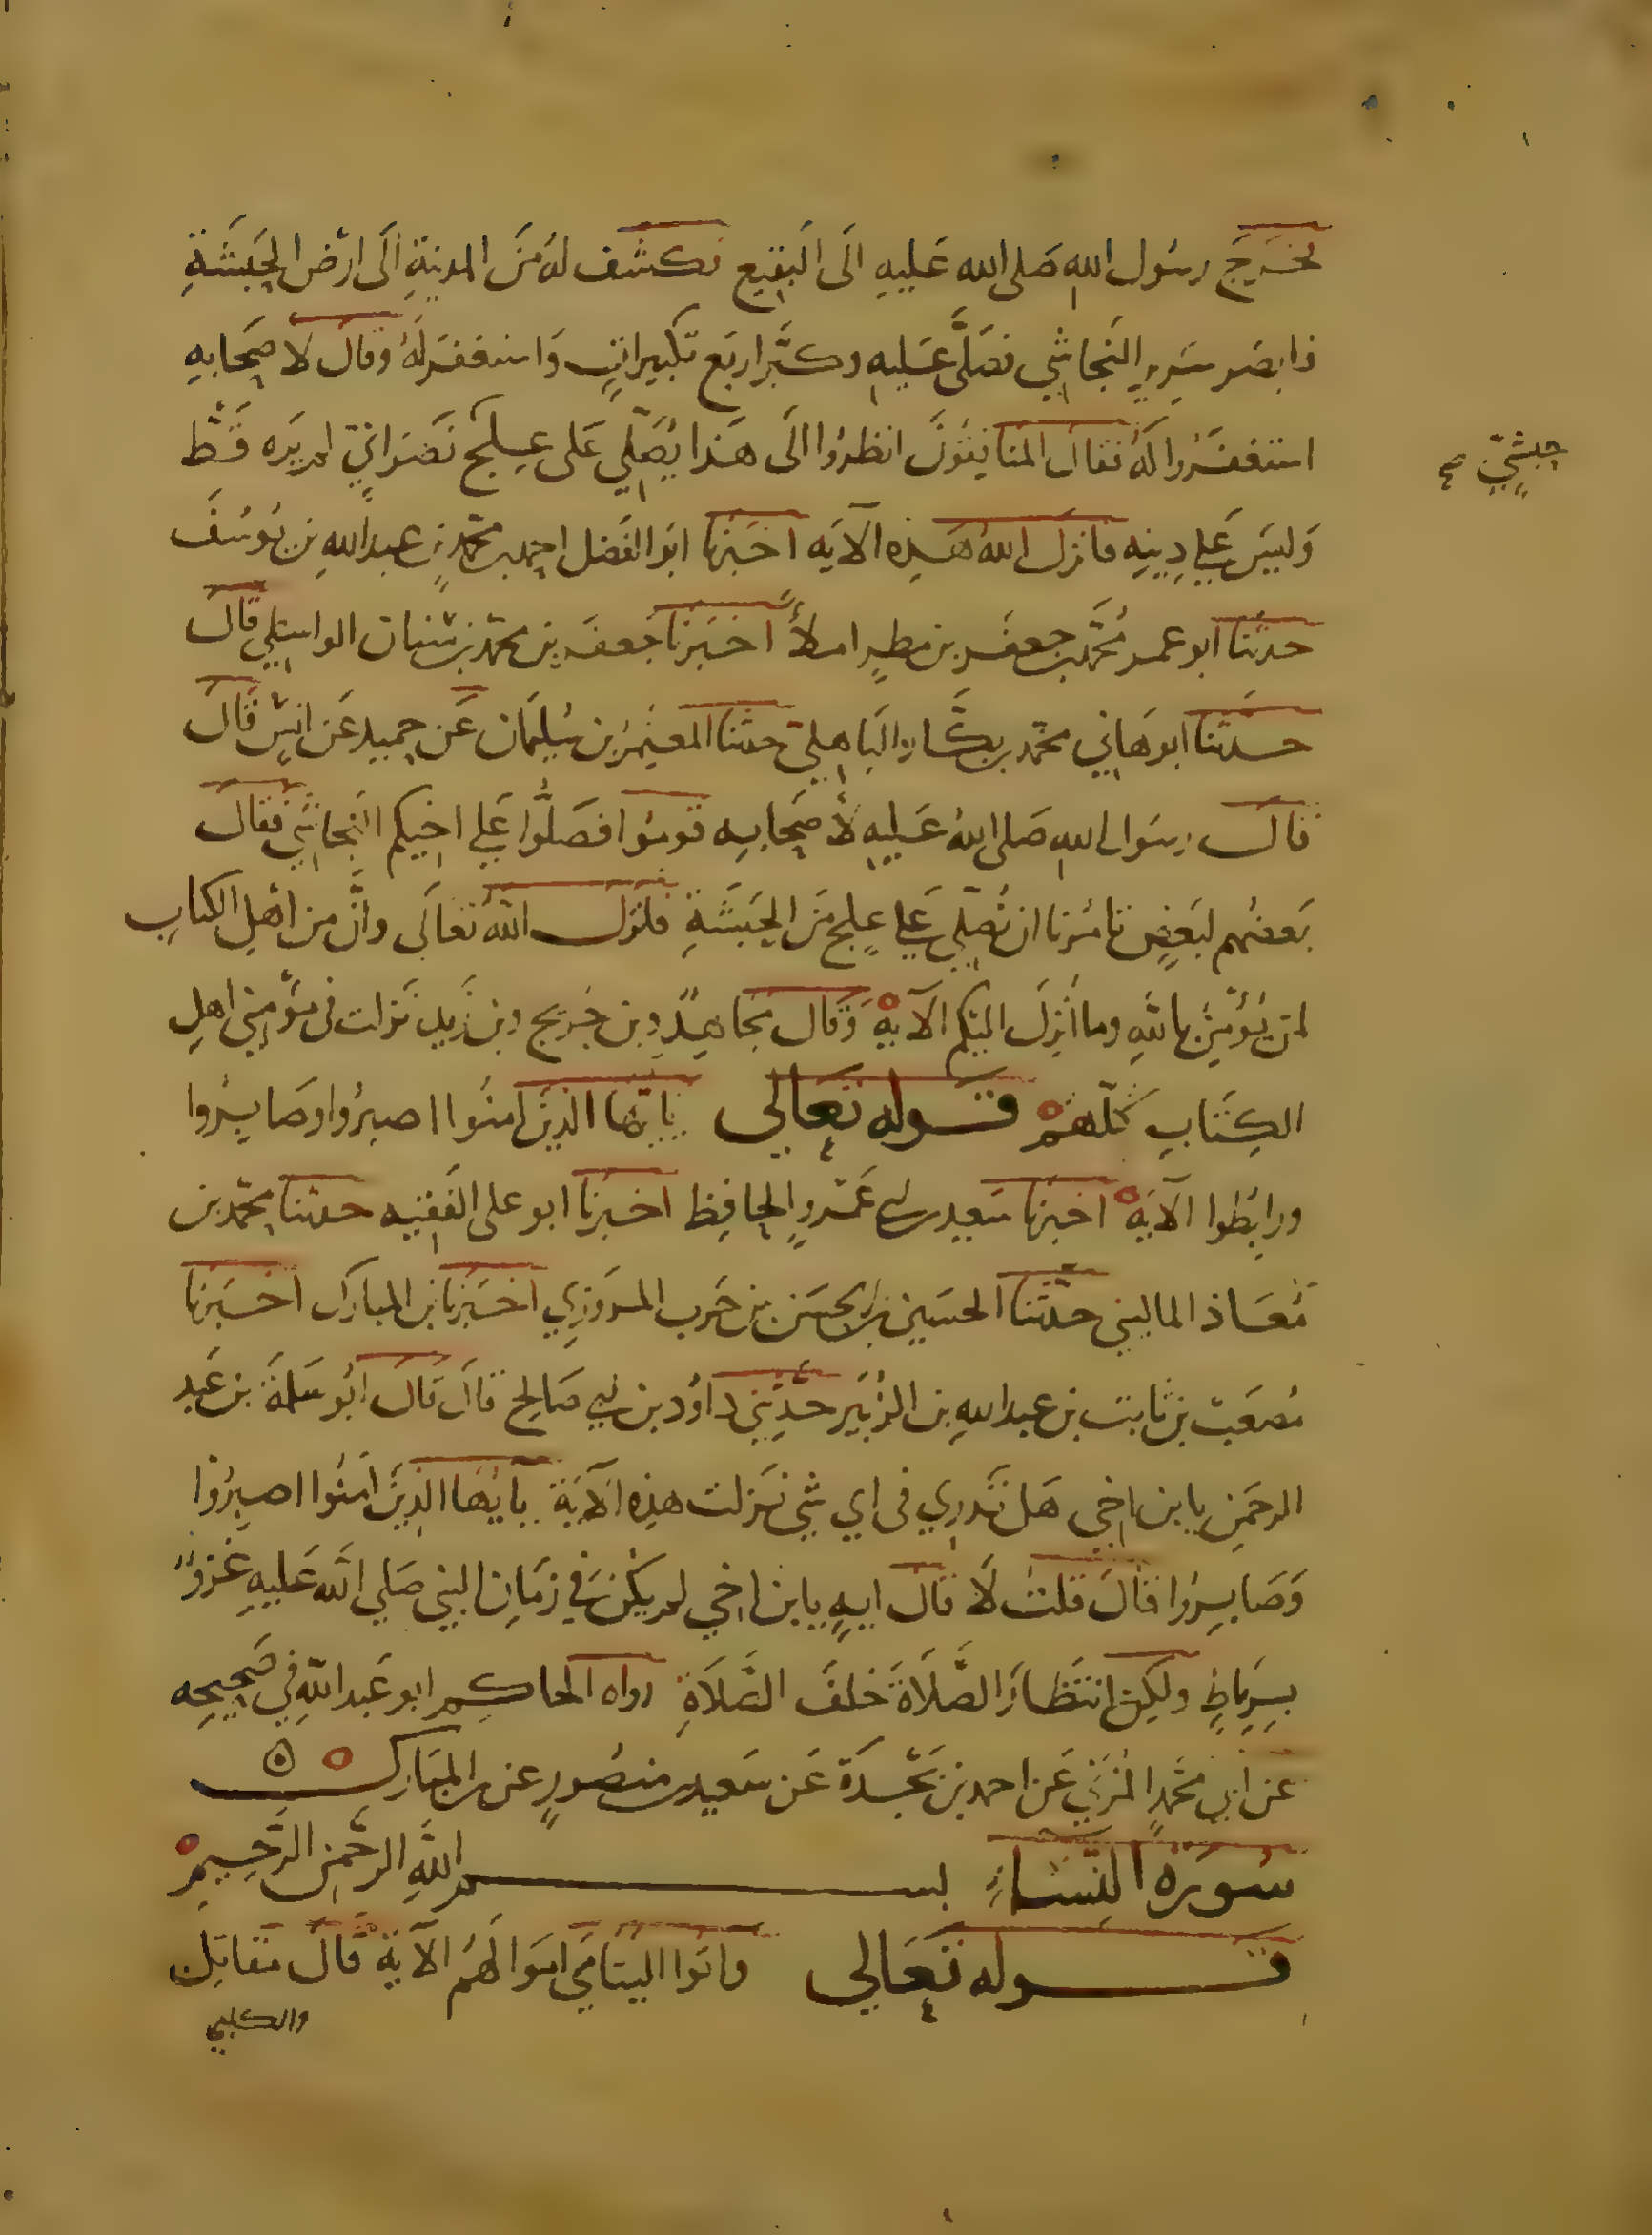 فخرج رسول الله صلى الله عليه الى البقيع فكشف له من المدينة الى ارض الحبشة
فابصر سرير النجاشي فصلى عليه وكبر اربع تكبيرات واستغفر له وقال لاصحابه
استغفروا له فقال المنافقون انظروا الى هذا يصلي على علج نصراني لم يره قط
حبشي صح
وليس على دينه فانزل الله هذه الآية اخبرنا ابو الفضل احمد بن محمد بن عبد الله بن يوسف
حدثنا ابو عمر محمد بن جعفر بن مطر املأ اخبرنا جعفر بن محمد بن سنان الواسطي قال
حدثنا ابو هاني محمد بن بكار الباهلي حدثنا المعتمر بن سليمان عن حميد عن انس قال
قال رسول الله صلى الله عليه لاصحابه قوموا فصلوا على اخيكم النجاشي فقال
بعضهم لبعض تامرنا ان نصلي على علج من الحبشة فانزل الله تعالى وان من اهل الكتاب
لمن يؤمن بالله وما أنزل اليكم الآية وقال مجاهد وبن جريج وبن زيد نزلت في مؤمني اهل
الكتاب كلهم قوله تعالى يايها الذين امنوا اصبروا وصابروا
ورابطوا الآية اخبرنا سعيد بن ابي عمرو الحافظ اخبرنا ابو على الفقيه حدثنا محمد بن
معاذ الماليني حدثنا الحسين بن الحسن بن حرب المروزي اخبرنا بن المبارك اخبرنا
مصعب بن ثابت بن عبد الله بن الزبير حدثني داود بن ابي صالح قال قال ابو سلمة بن عبد
الرحمن يابن اخي هل تدري في اي شي نزلت هذه الآية يايها الذين امنوا اصبروا
وصابروا قال قلت لا قال ايه يابن اخي لم يكن في زمان النبي صلي الله عليه غزو
يرباط ولكن انتظار الصلاة خلف الصلاة رواه الحاكم ابو عبد الله في صحيحه
عن ابي محمد المزني عن احمد بن نجدة عن سعيد بن منصور عن بن المبارك
سورة النساء بسم الله الرحمن الرحيم
قوله تعالى واتوا اليتامي اموالهم الآية قال مقاتل
والكلبي